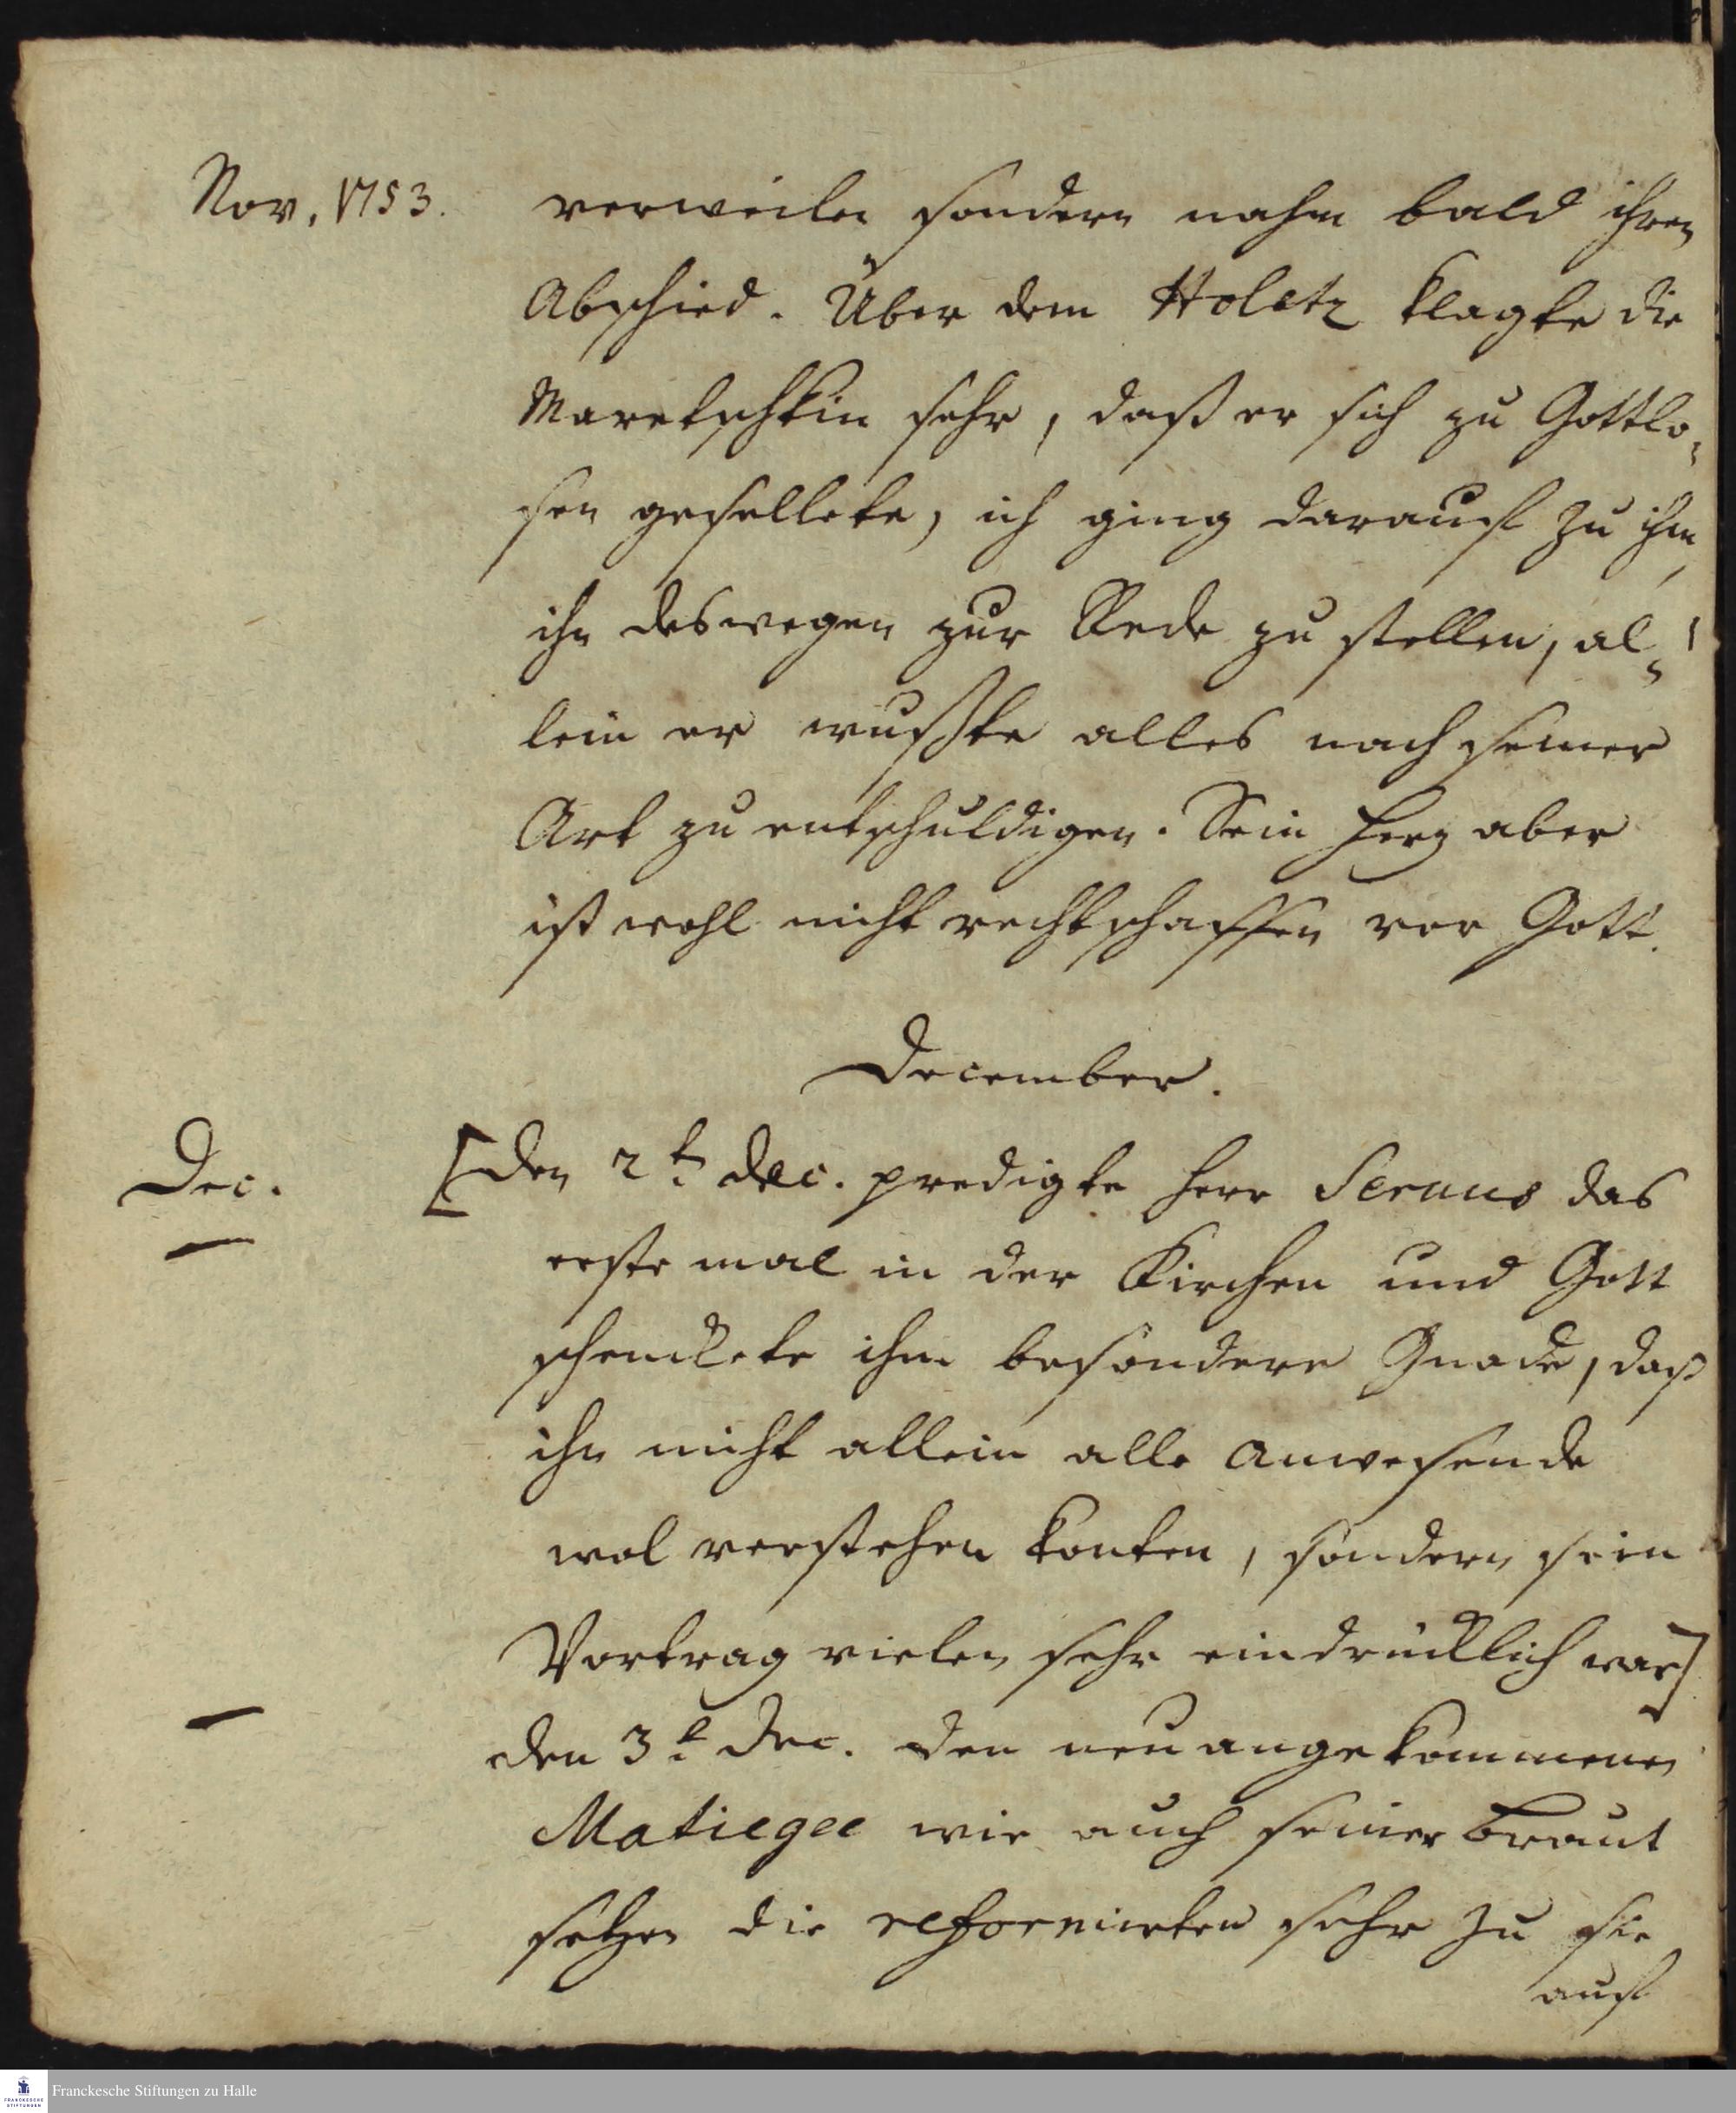 Nov. 1753.
verweilen sondern nahm bald ihren
Abschied. Über dem Holetz klagte die
Maretschkin sehr, daß er sich zu Gottlo-
sen gesellete, ich ging darauf zu ihm,
ihn deswegen zur Rede zu stellen, al-
lein er wußte alles nach seiner
Art zu entschuldigen. Sein Herz aber
ist wohl nicht rechtschaffen vor Gott.
December.
Dec.
[den 2t. Dec. predigte Herr Servus das
erste mal in der Kirchen und Gott
schenckete ihm besondere Gnade, daß
ihn nicht allein alle Anwesende
wol verstehen konten, sondern sein
Vortrag vielen sehr eindrücklich war]
den 3t. Dec. den neu angekommenen
Matiegee wie auch seiner Braut
setzen die reformirten sehr zu sie
auf
Franckesche Stiftungen zu Halle
FRANCKESCHE
STIFTUNGEN